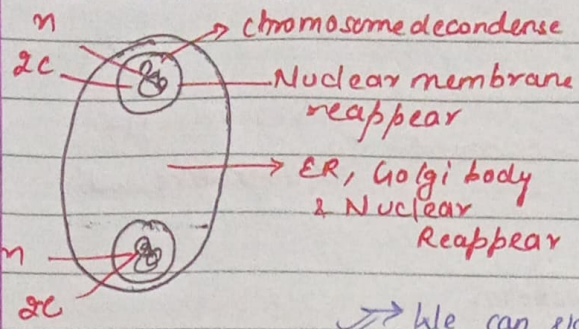 n
chromosome decondense
2c
Nuclear membrane
reappear
ER, Golgi body
& Nuclear
Reappear
n
2c
We can